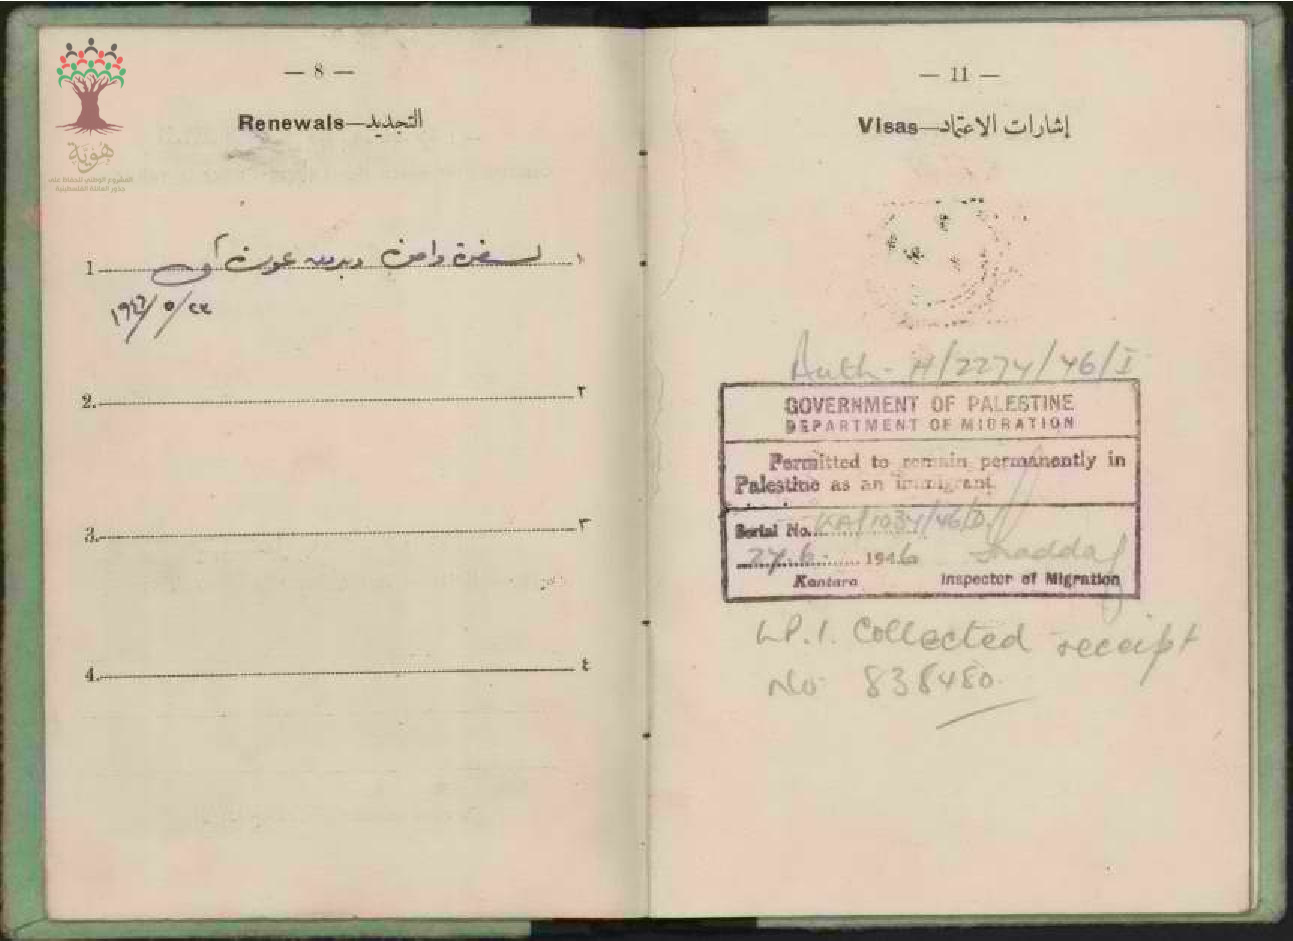 هوية
المشروع الوطني للحفاظ على
جذور العائلة الفلسطينية
— 8 —
Renewals—التجديد
1 ١
لسفرة واحدة وبدون عودة
٢٣/٥/١٩٤٦
2. ٢
3. ٣
4. ٤
— 11 —
Visas—إشارات الاعتماد
Auth- H/2274/46/I
GOVERNMENT OF PALESTINE
DEPARTMENT OF MIGRATION
Permitted to remain permanently in
Palestine as an immigrant.
Serial No. KA/1034/46/D.
27.6. 1946
Kantara Inspector of Migration
L.P.1. Collected receipt
No 838480.